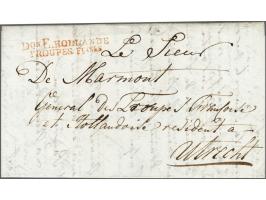 Don E. HOLLANDE
TROUPES FRANSES
Le Sieur
De Marmont
Général des Troupes Françoise
et Hollandoise resident à
Utrecht